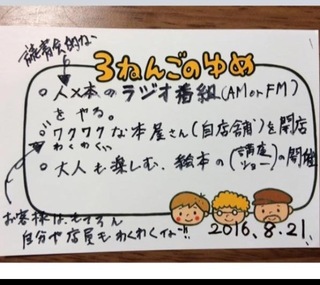 読書会的な
3ねんごのゆめ
○人×本のラジオ番組(AM or FM)
をやる。
○ワクワクな本屋さん(自店舗)を開店
わくわくい
○大人も楽しむ、絵本の(講座 ショー)の開催
お客様は、もちろん
自分や店員もわくわく
2016.8.21